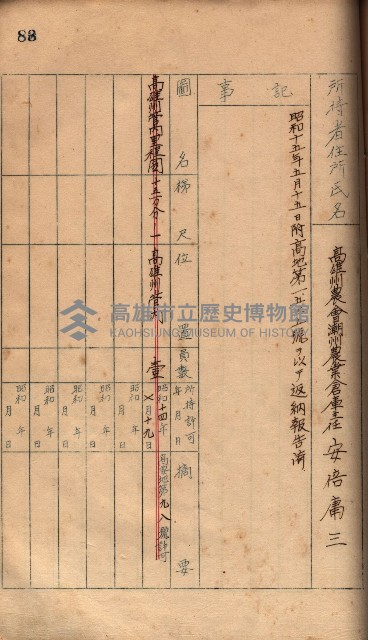 83
所持者住所氏名
高雄州農會潮州農業倉庫主任 安倍庸三
記事
昭和十五年五月十五日附高地第一五 號ヲ以テ返納報告濟
圖名 梯尺 位置 員數 所持許可年月日 摘要
高雄州管內 圖 十五万分一 高雄州管內 壹 昭和十四年 月十九日 高 地第九八 號許可
昭和 年 月 日
昭和 年 月 日
昭和 年 月 日
昭和 年 月 日
高雄市立歷史博物館
KAOHSIUNG MUSEUM OF HISTORY